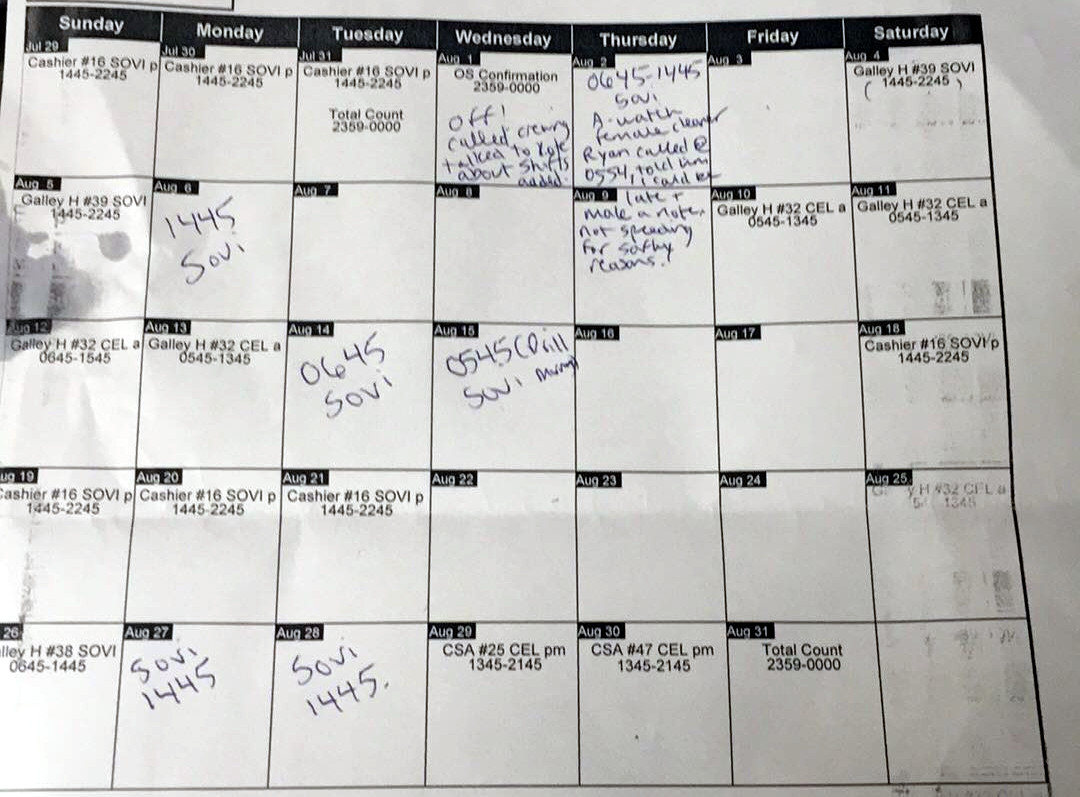 Sunday Monday Tuesday Wednesday Thursday Friday Saturday
Jul 29
Cashier #16 SOVI p
1445-2245
Jul 30
Cashier #16 SOVI p
1445-2245
Jul 31
Cashier #16 SOVI p
1445-2245
Total Count
2359-0000
Aug 1
OS Confirmation
2359-0000
Off!
called crewing
talked to
about shifts
added.
Aug 2
0645-1445
Sovi
A-watch
female cleaner
Ryan called @
0554, told him
i could be
Aug 3
Aug 4
Galley H #39 SOVI
( 1445-2245 )
Aug 5
Galley H #39 SOVI
1445-2245
Aug 6
1445
Sovi
Aug 7
Aug 8
Aug 9
late +
make a note,
not speeding
for safty
reasons.
Aug 10
Galley H #32 CEL a
0545-1345
Aug 11
Galley H #32 CEL a
0545-1345
Aug 12
Galley H #32 CEL a
0645-1545
Aug 13
Galley H #32 CEL a
0545-1345
Aug 14
0645
Sovi
Aug 15
0545 (Drill
Sovi
Aug 16
Aug 17
Aug 18
Cashier #16 SOVI p
1445-2245
ug 19
Cashier #16 SOVI p
1445-2245
Aug 20
Cashier #16 SOVI p
1445-2245
Aug 21
Cashier #16 SOVI p
1445-2245
Aug 22
Aug 23
Aug 24
Aug 25
y H #32 CEL a
1345
26
lley H #38 SOVI
0645-1445
Aug 27
Sovi
1445
Aug 28
Sovi
1445.
Aug 29
CSA #25 CEL pm
1345-2145
Aug 30
CSA #47 CEL pm
1345-2145
Aug 31
Total Count
2359-0000